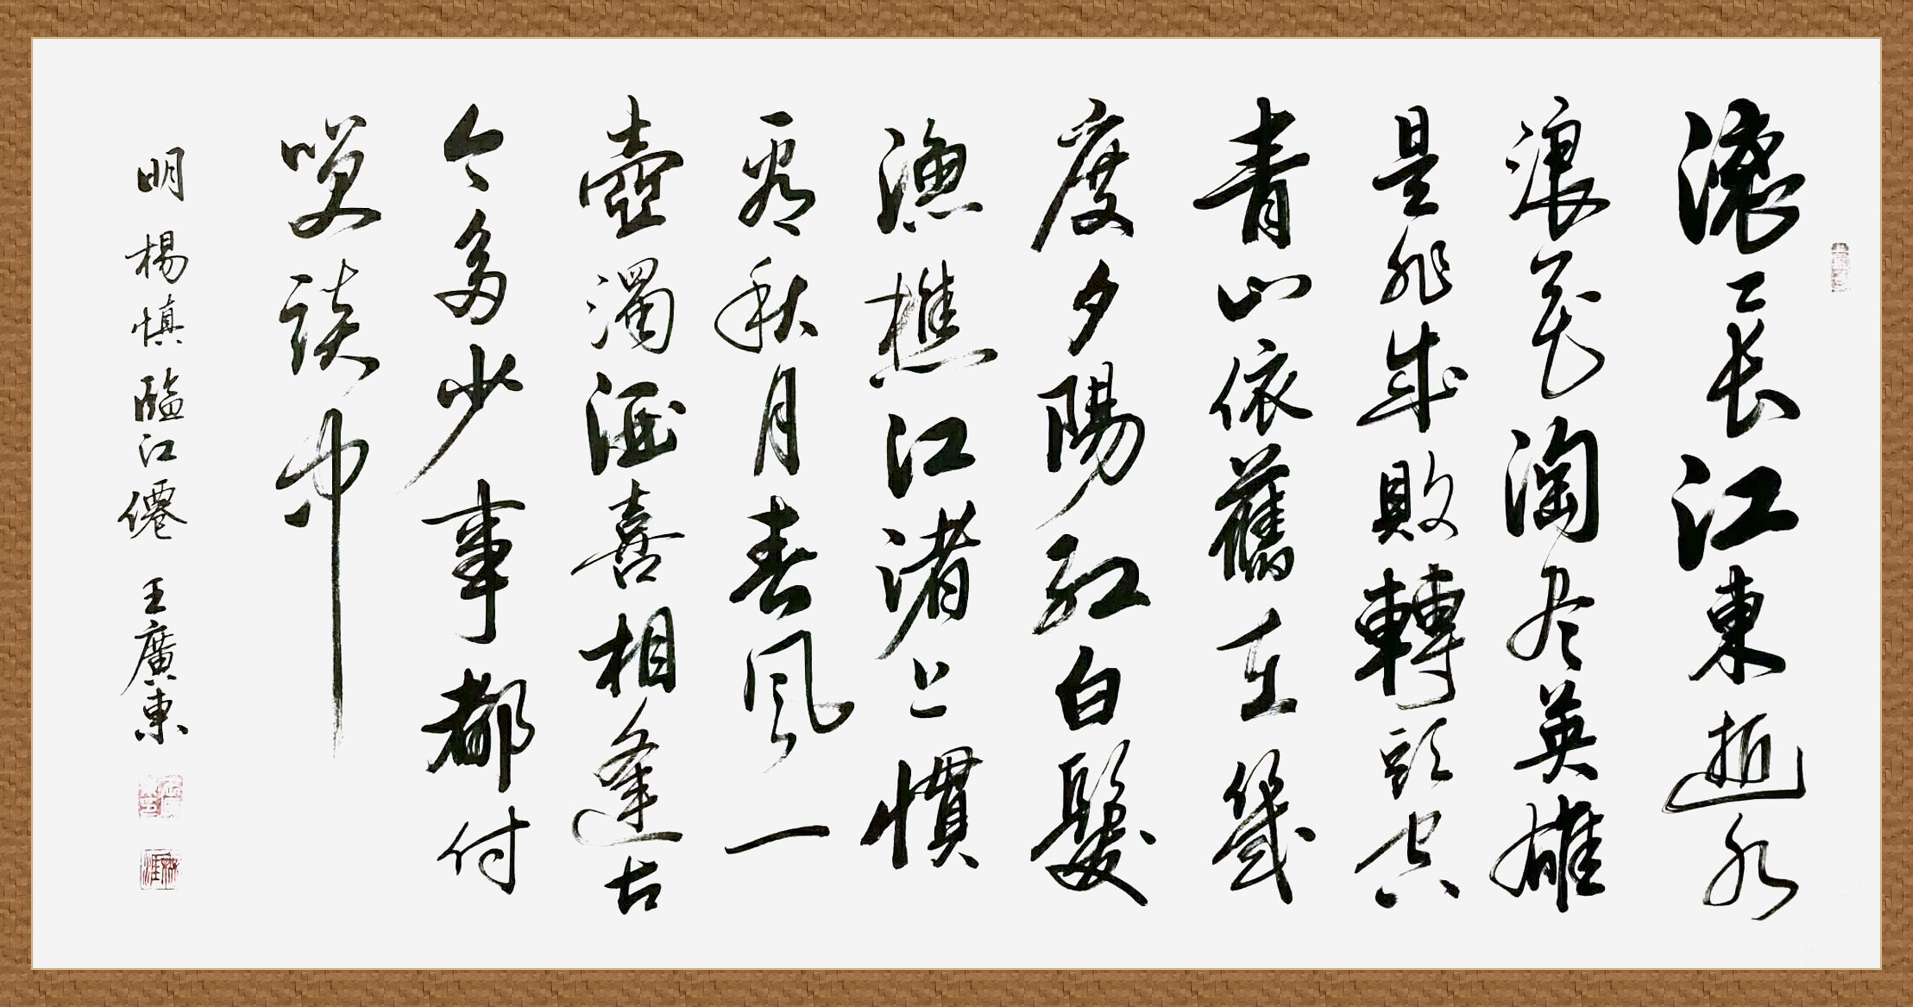 滚〻长江東逝水
浪花淘尽英雄
是非成敗轉頭空
青山依舊在幾
度夕陽紅白髮
漁樵江渚上慣
看秋月春風一
壺濁酒喜相逢古
今多少事都付
咲談中
明 楊慎 臨江僊 王廣東